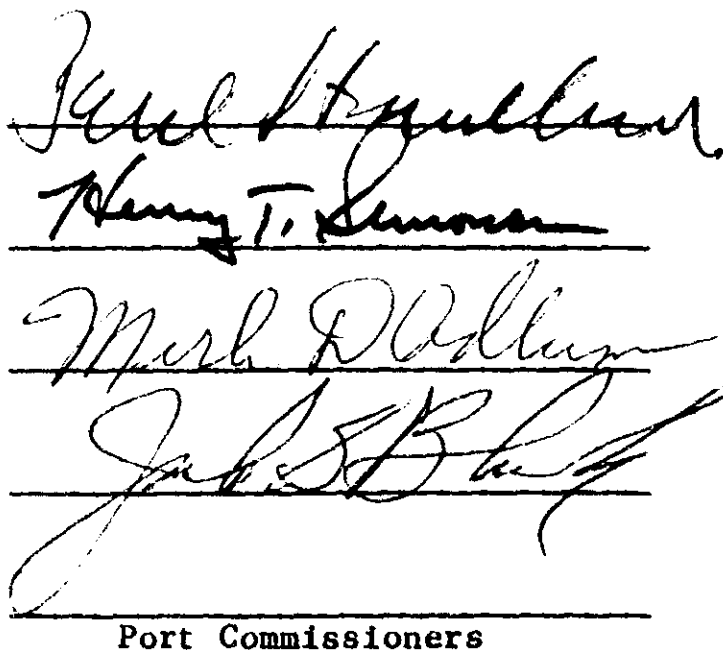 Paul S Friedlander
Henry T. Simonson
Merle D Adlum
Jack S Block
Port Commissioners